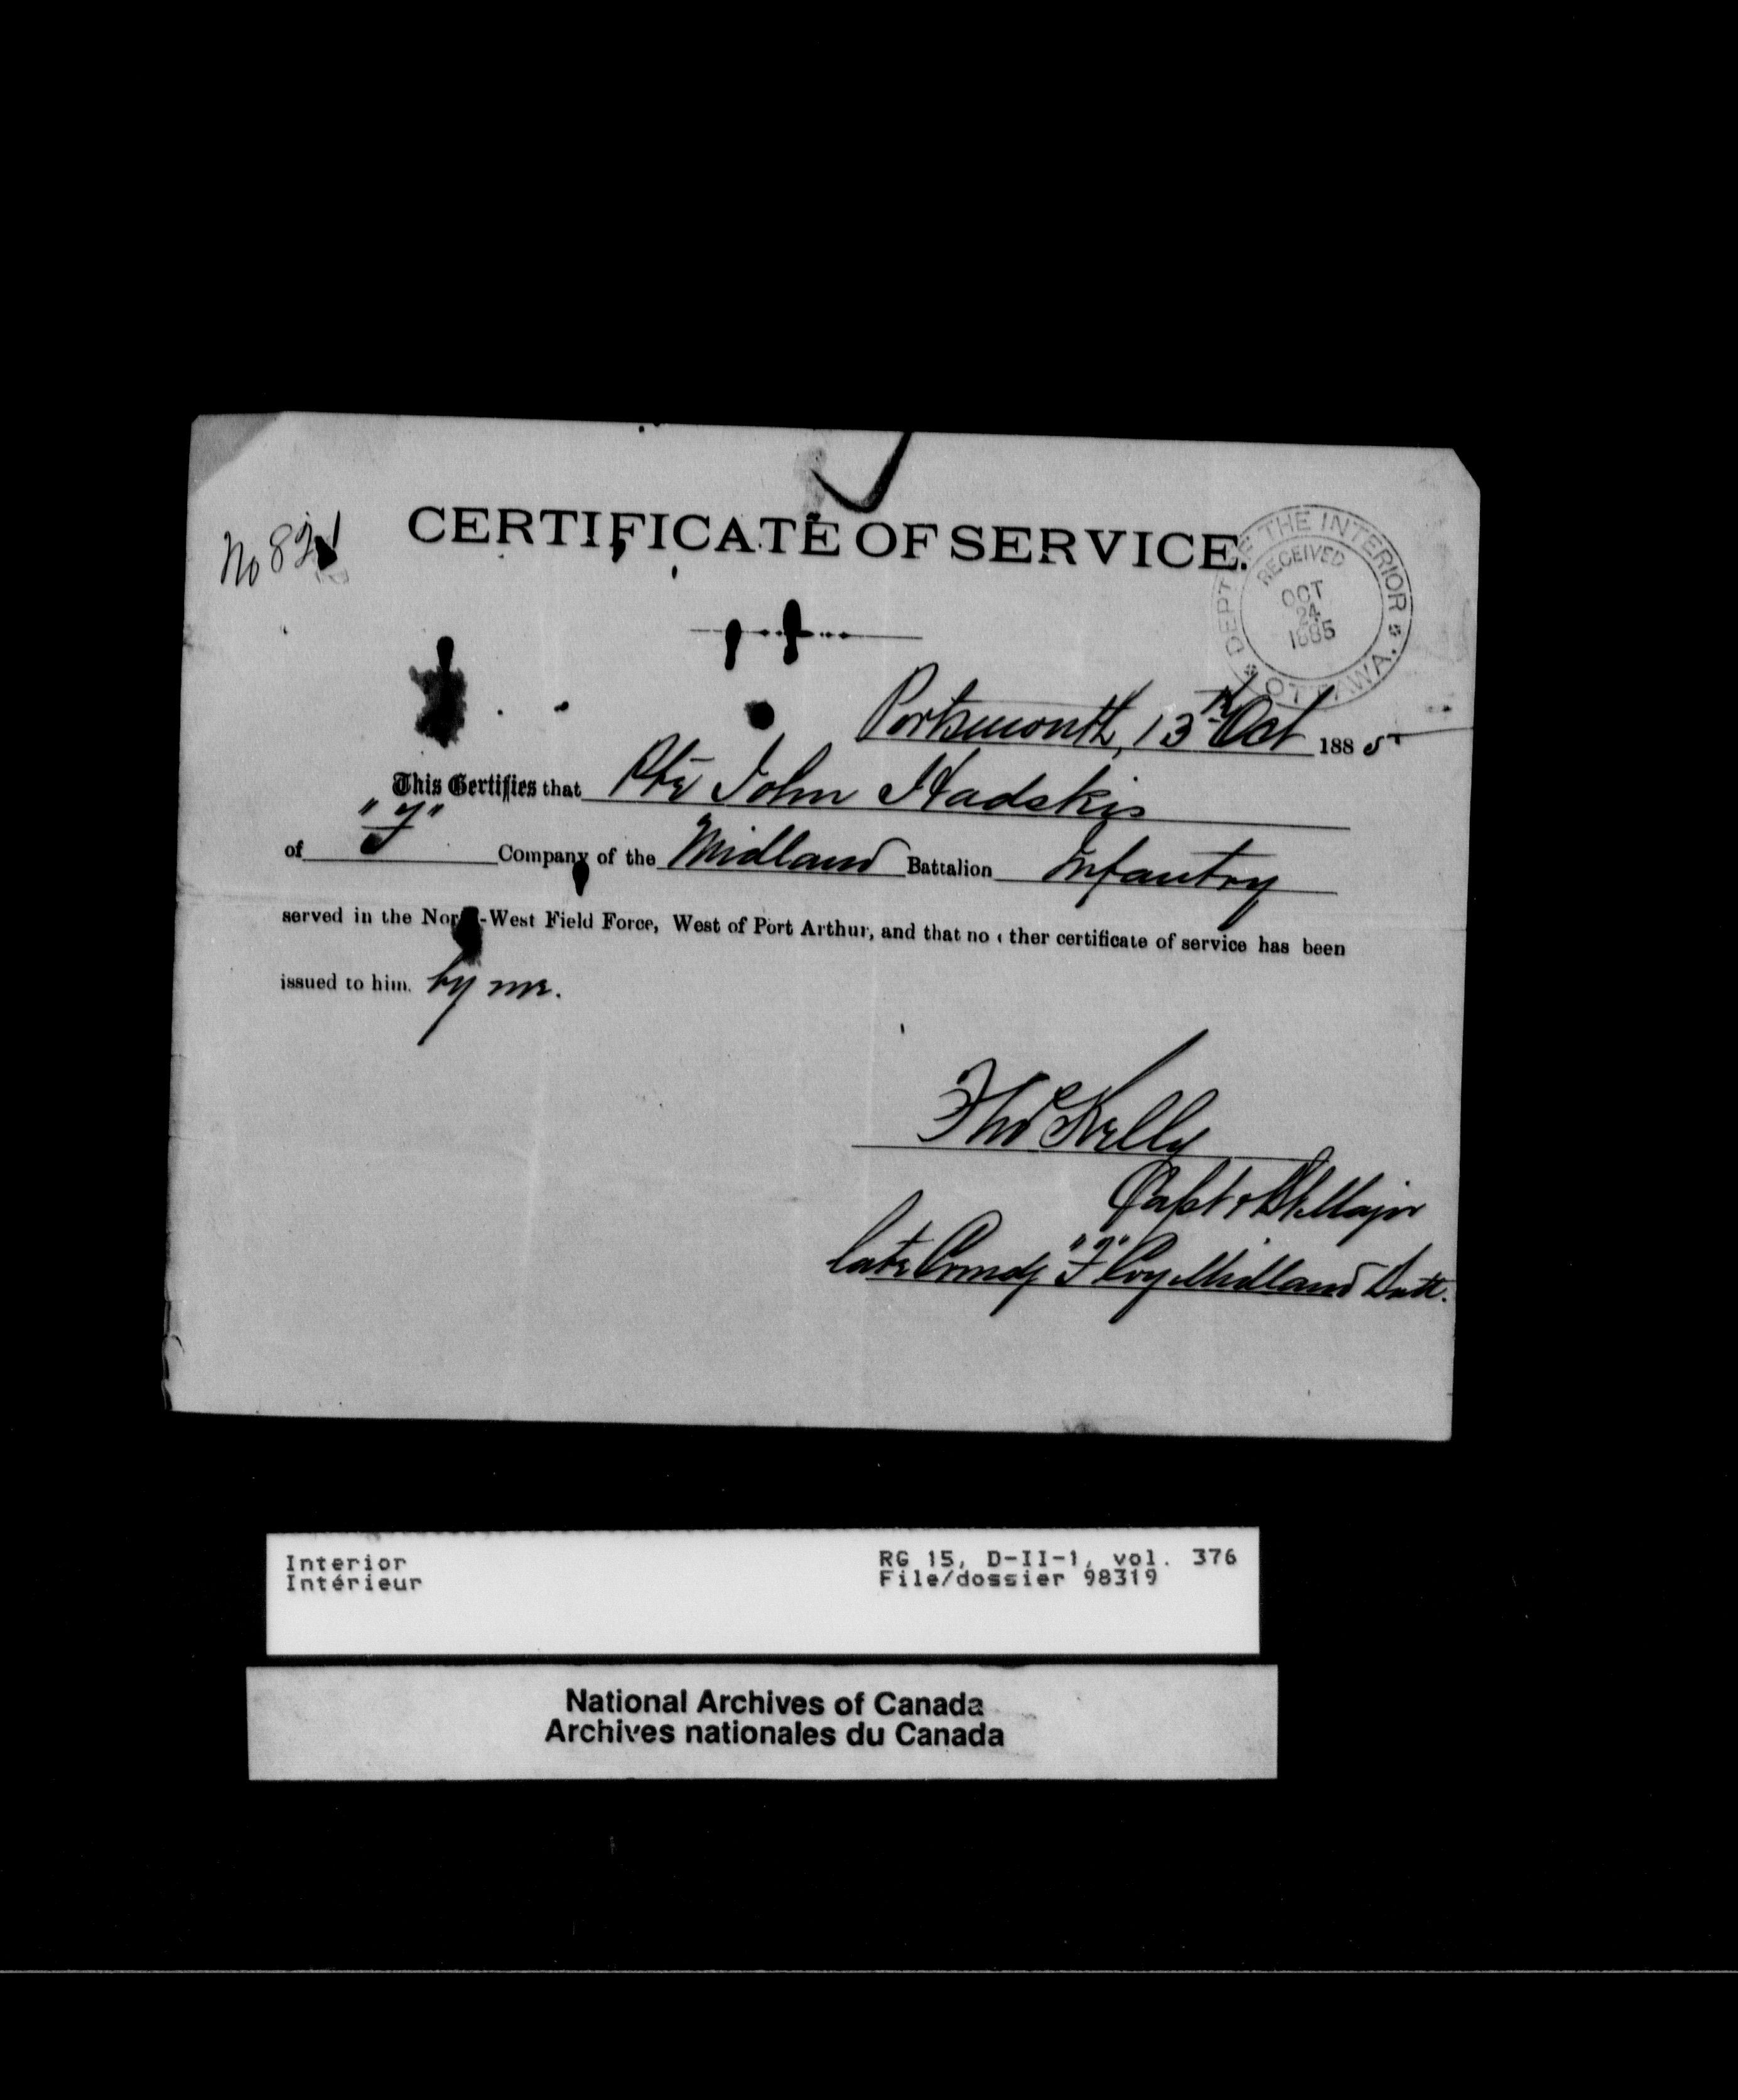 No 821
CERTIFICATE OF SERVICE.
DEPT OF THE INTERIOR
RECEIVED
OCT
24
1885
OTTAWA.
Portsmouth, 13th Oct 1885
This Certifies that Pte John Hadskis
of "F" Company of the Midland Battalion Infantry
served in the North-West Field Force, West of Port Arthur, and that no other certificate of service has been
issued to him. by me.
Thos Kelly
Capt & Bt Major
late Comdg "F" Coy Midland Batt.
Interior
Intérieur
RG 15, D-II-1, vol. 376
File/dossier 98319
National Archives of Canada
Archives nationales du Canada